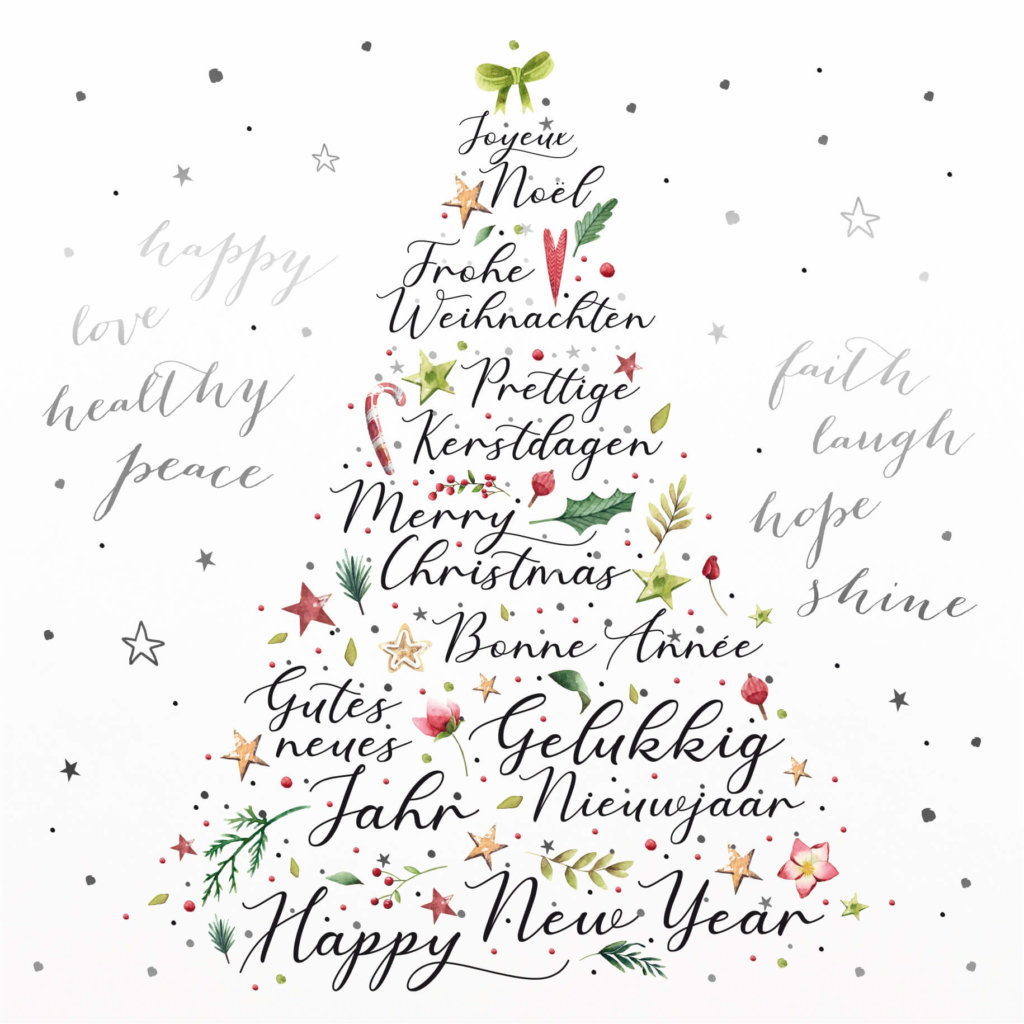 Joyeux
Noël
Frohe
Weihnachten
Prettige
Kerstdagen
Merry
Christmas
Bonne Année
Gutes
neues
Jahr
Gelukkig
Nieuwjaar
Happy New Year
happy
love
healthy
peace
faith
laugh
hope
shine